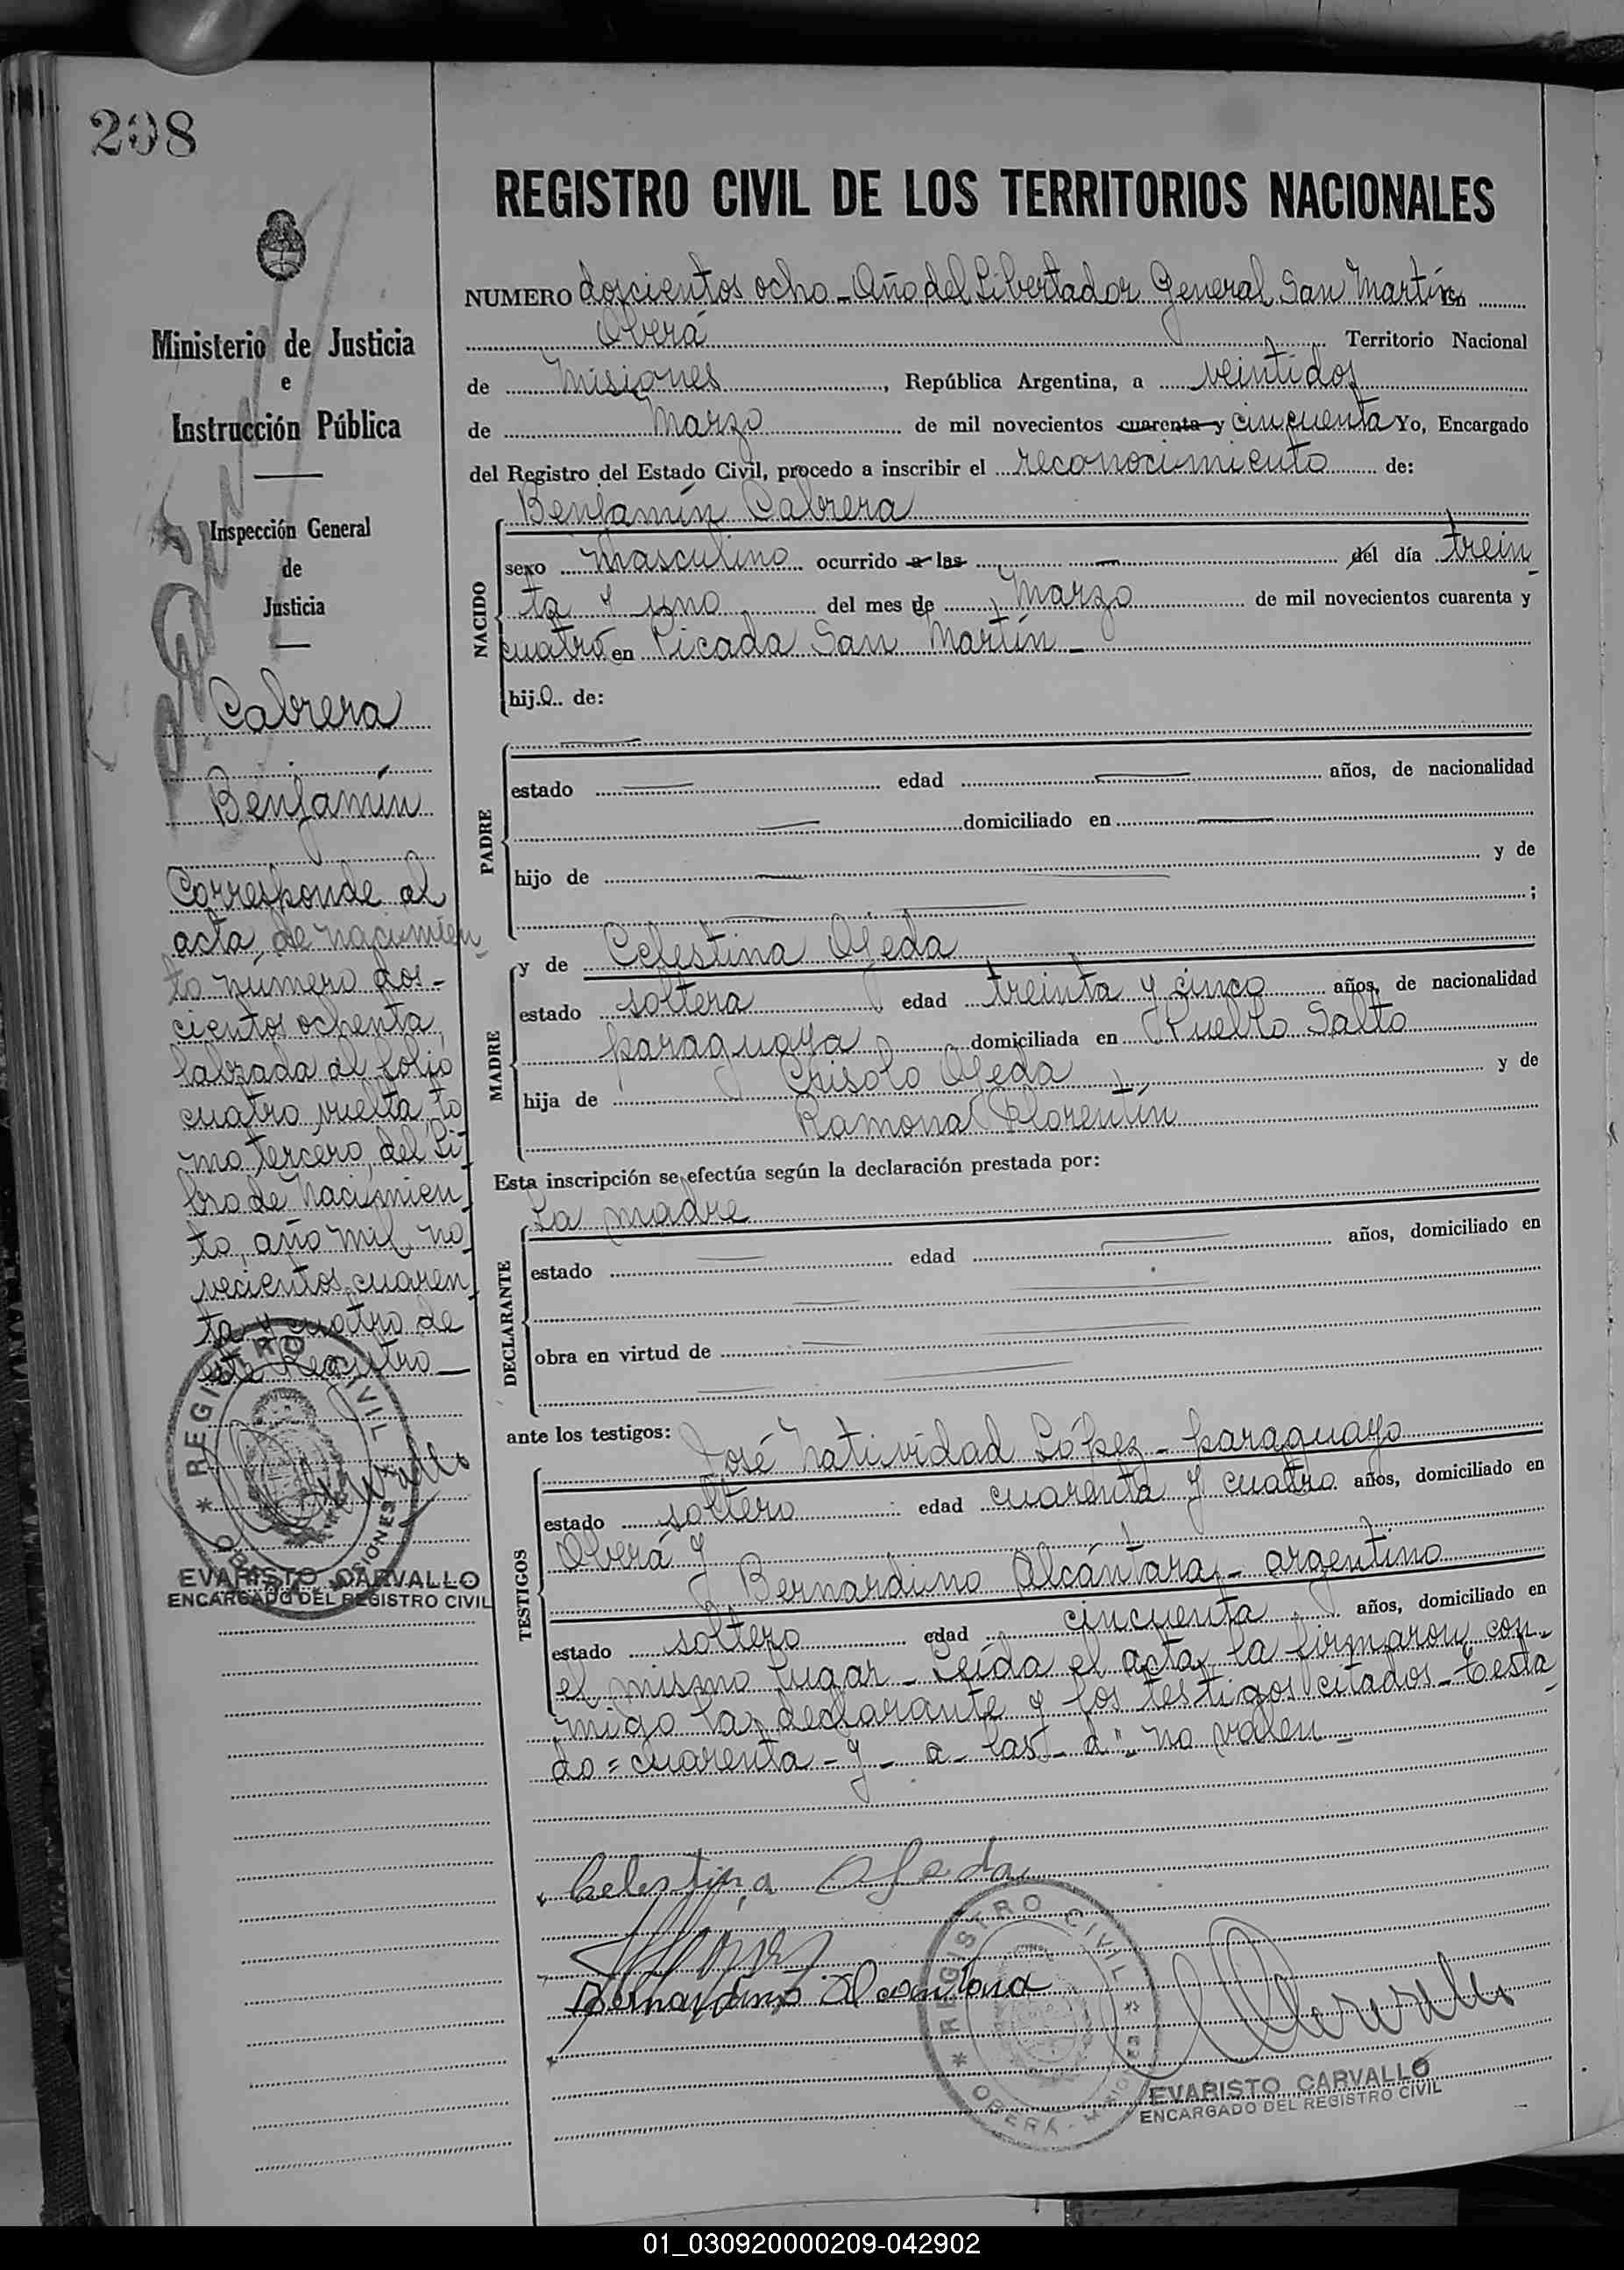 208
Ministerio de Justicia
e
Instrucción Pública
Inspección General
de
Justicia
Cabrera
Benjamín
Corresponde al
acta de nacimien
to número dos-
cientos ochenta
labrada al folio
cuatro vuelta, to
mo tercero, del Li-
bro de Nacimien
to, año mil no
vecientos cuaren
ta y cuatro de
este Registro
REGISTRO CIVIL
OBERÁ - MISIONES
EVARISTO CARVALLO
ENCARGADO DEL REGISTRO CIVIL
REGISTRO CIVIL DE LOS TERRITORIOS NACIONALES
NUMERO doscientos ocho - Año del Libertador General San Martín en
Oberá Territorio Nacional
de Misiones, República Argentina, a veintidos
de Marzo de mil novecientos cuarenta y cincuenta Yo, Encargado
del Registro del Estado Civil, procedo a inscribir el reconocimiento de:
Benjamín Cabrera
NACIDO
sexo Masculino ocurrido a las — del día trein
ta y uno del mes de Marzo de mil novecientos cuarenta y
cuatro en Picada San Martín -
hijo de:
PADRE
estado — edad — años, de nacionalidad
— domiciliado en —
hijo de — y de
;
MADRE
y de Celestina Ojeda
estado soltera edad treinta y cinco años, de nacionalidad
paraguaya domiciliada en Pueblo Salto
hija de Crisolo Ojeda y de
Ramona Florentín
Esta inscripción se efectúa según la declaración prestada por:
La madre
DECLARANTE
estado — edad — años, domiciliado en
obra en virtud de
ante los testigos: José Natividad López - paraguayo
TESTIGOS
estado soltero edad cuarenta y cuatro años, domiciliado en
Oberá y
Bernardino Alcántara - argentino
estado soltero edad cincuenta años, domiciliado en
el mismo lugar - Leída el acta, la firmaron con-
migo la declarante y los testigos citados - Testa
do = cuarenta - y - a - las - d" - no valen -
Celestina Ojeda
Bernardino Alcantara
REGISTRO CIVIL
OBERÁ - MISIONES
EVARISTO CARVALLO
ENCARGADO DEL REGISTRO CIVIL
01_030920000209-042902